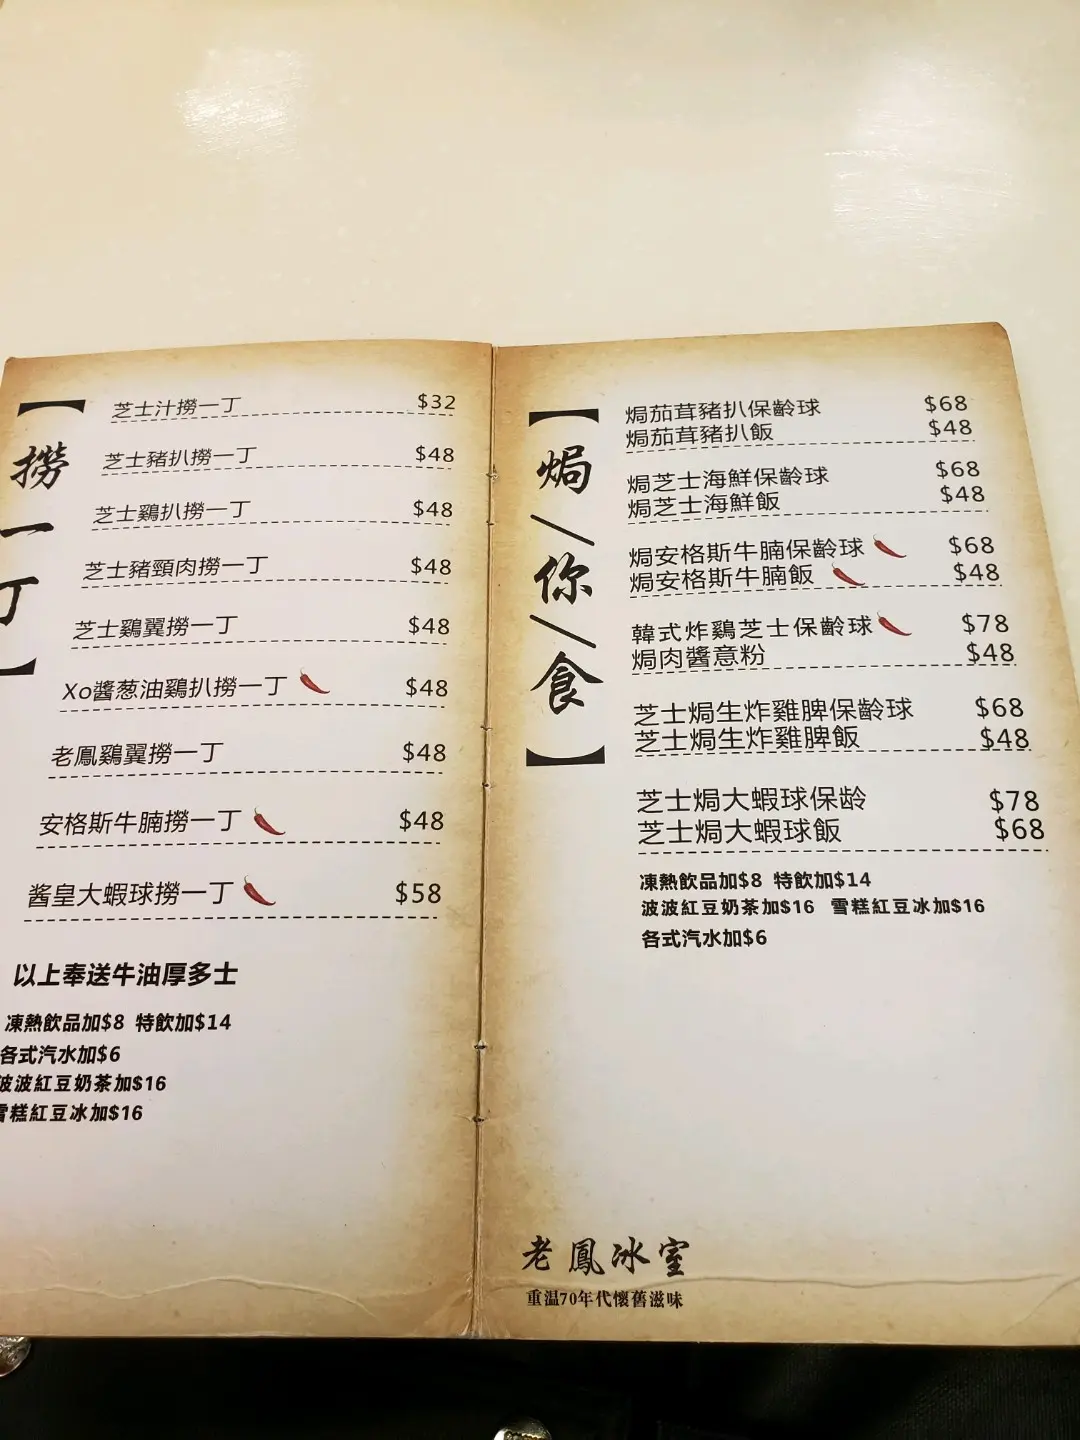 【撈一丁】
芝士汁撈一丁 $32
芝士豬扒撈一丁 $48
芝士鷄扒撈一丁 $48
芝士豬頸肉撈一丁 $48
芝士鷄翼撈一丁 $48
Xo醬葱油鷄扒撈一丁 $48
老鳳鷄翼撈一丁 $48
安格斯牛腩撈一丁 $48
酱皇大蝦球撈一丁 $58
以上奉送牛油厚多士
凍熱飲品加$8 特飲加$14
各式汽水加$6
波波紅豆奶茶加$16
雪糕紅豆冰加$16
【焗/你/食】
焗茄茸豬扒保齡球 $68
焗茄茸豬扒飯 $48
焗芝士海鮮保齡球 $68
焗芝士海鮮飯 $48
焗安格斯牛腩保齡球 $68
焗安格斯牛腩飯 $48
韓式炸鷄芝士保齡球 $78
焗肉醬意粉 $48
芝士焗生炸雞脾保齡球 $68
芝士焗生炸雞脾飯 $48
芝士焗大蝦球保龄 $78
芝士焗大蝦球飯 $68
凍熱飲品加$8 特飲加$14
波波紅豆奶茶加$16 雪糕紅豆冰加$16
各式汽水加$6
老鳳冰室
重温70年代懷舊滋味